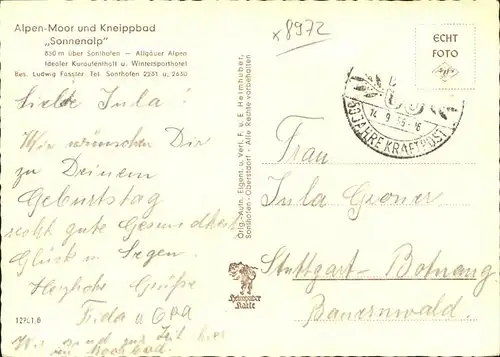 Alpen-Moor und Kneippbad
„Sonnenalp"
850 m über Sonthofen — Allgäuer Alpen
Idealer Kuraufenthalt u. Wintersporthotel
Bes. Ludwig Fässler Tel. Sonthofen 2281 u. 2650
x 8972
ECHT
FOTO
14. 9.
50 JAHRE KRAFTPOST
Liebe Jula!
Wir wünschen Dir
zu Deinem
Geburtstag
recht gute Gesundheit
Glück u Segen.
Herzliche Grüße
Frida u
Wir sind zur Zeit hier
im Moorbad.
12961.6
Orig.-Aufn. Eigent. u. Verl. F. u. E. Heimhuber,
Sonthofen-Oberstdorf - Alle Rechte vorbehalten
Heimhuber
Karte
Frau
Jula
Stuttgart- Botnang
Bauernwald.